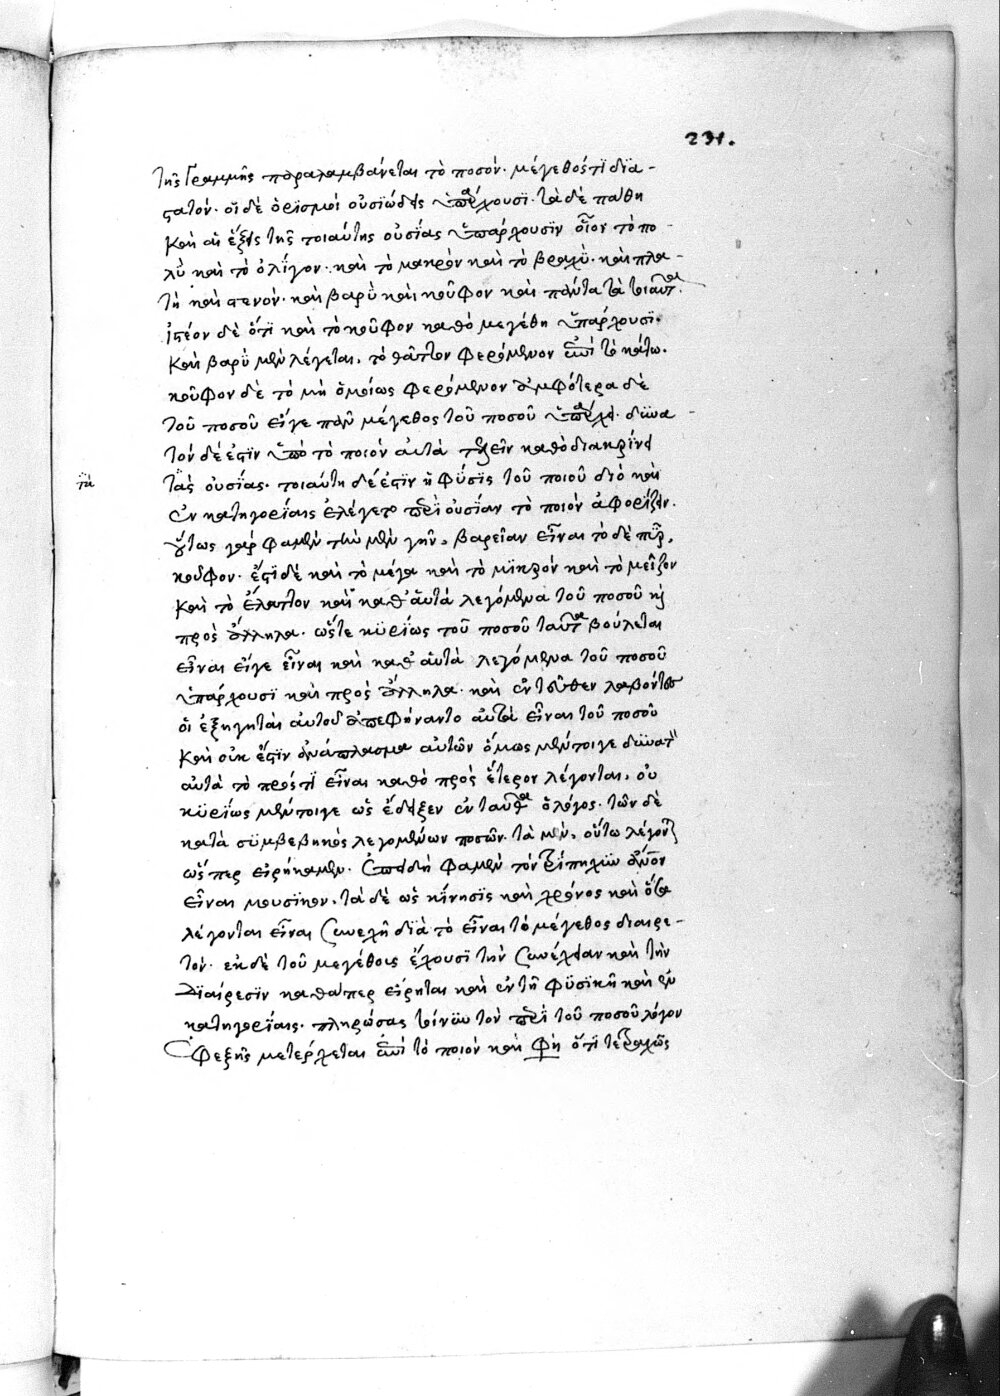 231.
τῆς γραμμῆς παραλαμβάνεται τὸ ποσόν· μέγεθός τϊ δϊα-
στατόν· οἵ δὲ ὁρϊσμοὶ οὐσϊώδεις ὑπάρχουσι· τὰ δὲ πάθη
καὶ αἱ ἕξεις τῆς τοιαύτης οὐσΐας ὑπάρχουσϊν οἷον τὸ πο-
λὺ καὶ τὸ ὀλΐγον· καὶ τὸ μακρὸν καὶ τὸ βραχὺ· καὶ πλα-
τὴ καὶ στενόν· καὶ βαρὺ καὶ κοῦφον καὶ πάντα τὰ τοιαῦτα·
ἰστέον δὲ ὅτϊ καὶ τὸ κοῦφον καθὸ μεγέθη ὑπάρχουσϊ·
καὶ βαρὺ μὲν λέγεται, τὸ θᾶττον φερόμενον ἐπὶ τὸ κάτω.
κοῦφον δὲ τὸ μὴ ὁμοίως φερόμενον ἀμφότερα δὲ
τοῦ ποσοῦ εἴγε πᾶν μέγεθος τοῦ ποσοῦ ὑπάρχει· δϋνα-
τὸν δέ ἐστϊν ὑπὸ τὸ ποιὸν αὐτὰ τελεῖν καθὸ διακρΐνει
τὰς οὐσΐας· τοιαύτη δέ ἐστϊν ἡ φύσϊς τοῦ ποιοῦ διὸ καὶ
τὰ
ἐν κατηγορΐαις ἐλέγετο περὶ οὐσΐαν τὸ ποιὸν ἀφορΐζειν.
οὕτως γάρ φαμεν τὴν μὲν γῆν, βαρεῖαν εἶναι τὸ δὲ πῦρ,
κοῦφον· ἔστϊ δὲ καὶ τὸ μέγα καὶ τὸ μϊκρὸν καὶ τὸ μεῖζον
καὶ τὸ ἔλαττον καὶ καθ' αὑτὰ λεγόμενα τοῦ ποσοῦ κὶ
πρὸς ἄλληλα· ὥστε κϋρΐως τοῦ ποσοῦ ταῦτα βούλεται
εἶναι εἴγε εἶναι καὶ καθ' αὑτὰ λεγόμενα τοῦ ποσοῦ
ὑπάρχουσϊ καὶ πρὸς ἄλληλα· καὶ ἐντεῦθεν λαβόντες
οἱ ἐξηγηταὶ αὐτοῦ ἀπεφήναντο αὐτὰ εἶναι τοῦ ποσοῦ
καὶ οὐκ ἔστϊν ἀνάπλασμα αὐτῶν ὅμως μέντοιγε δϋνατ
αὐτὰ τὸ πρός τϊ εἶναι καθὸ πρὸς ἕτερον λέγονται, οὐ
κϋρΐως μέντοιγε ὡς ἔδειξεν ἐνταῦθα ὁ λόγος· τῶν δὲ
κατὰ σϋμβεβηκὸς λεγομένων ποσῶν· τὰ μὲν, οὕτω λέγονται
ὥσπερ εἰρήκαμεν· ἐπειδὴ φαμὲν τὸν τρίπηχϋν ἄνον
εἶναι μουσϊκον, τὰ δὲ ὡς κΐνησϊς καὶ χρόνος καὶ ὅσα
λέγονται εἶναι συνεχῆ δϊὰ τὸ εἶναι τὸ μέγεθος διαιρε-
τόν· ἐκ δὲ τοῦ μεγέθους ἔχουσϊ τὴν συνέχειαν καὶ τὴν
διαίρεσϊν καθάπερ εἴρηται καὶ ἐν τῇ φϋσϊκῇ καὶ ἐν
κατηγορΐαις· πληρώσας τοίνϋν τὸν περὶ τοῦ ποσοῦ λόγον
ἐφεξῆς μετέρχεται ἐπὶ τὸ ποιὸν καὶ φὴ ὅτϊ τετραχῶς